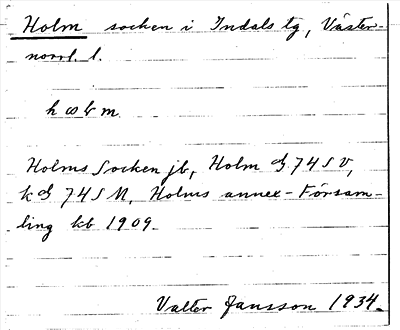 Holm socken i Indals tg, Väster-
norrl. l.
Holms Socken jb, Holm 74 S V,
74 S M, Holms annex-Försam-
ling kb 1909.
Valter Jansson 1934.